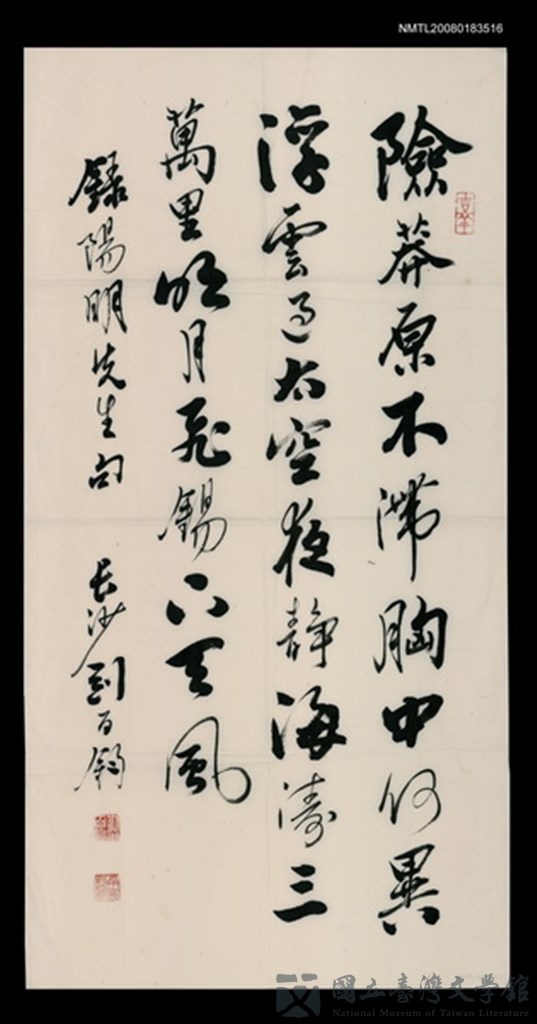 NMTL20080183516
險莽原不滯胸中何異
浮雲過太空夜靜海濤三
萬里明月飛錫下天風
錄陽明先生句 長沙劉百鈞
國立臺灣文學館
National Museum of Taiwan Literature